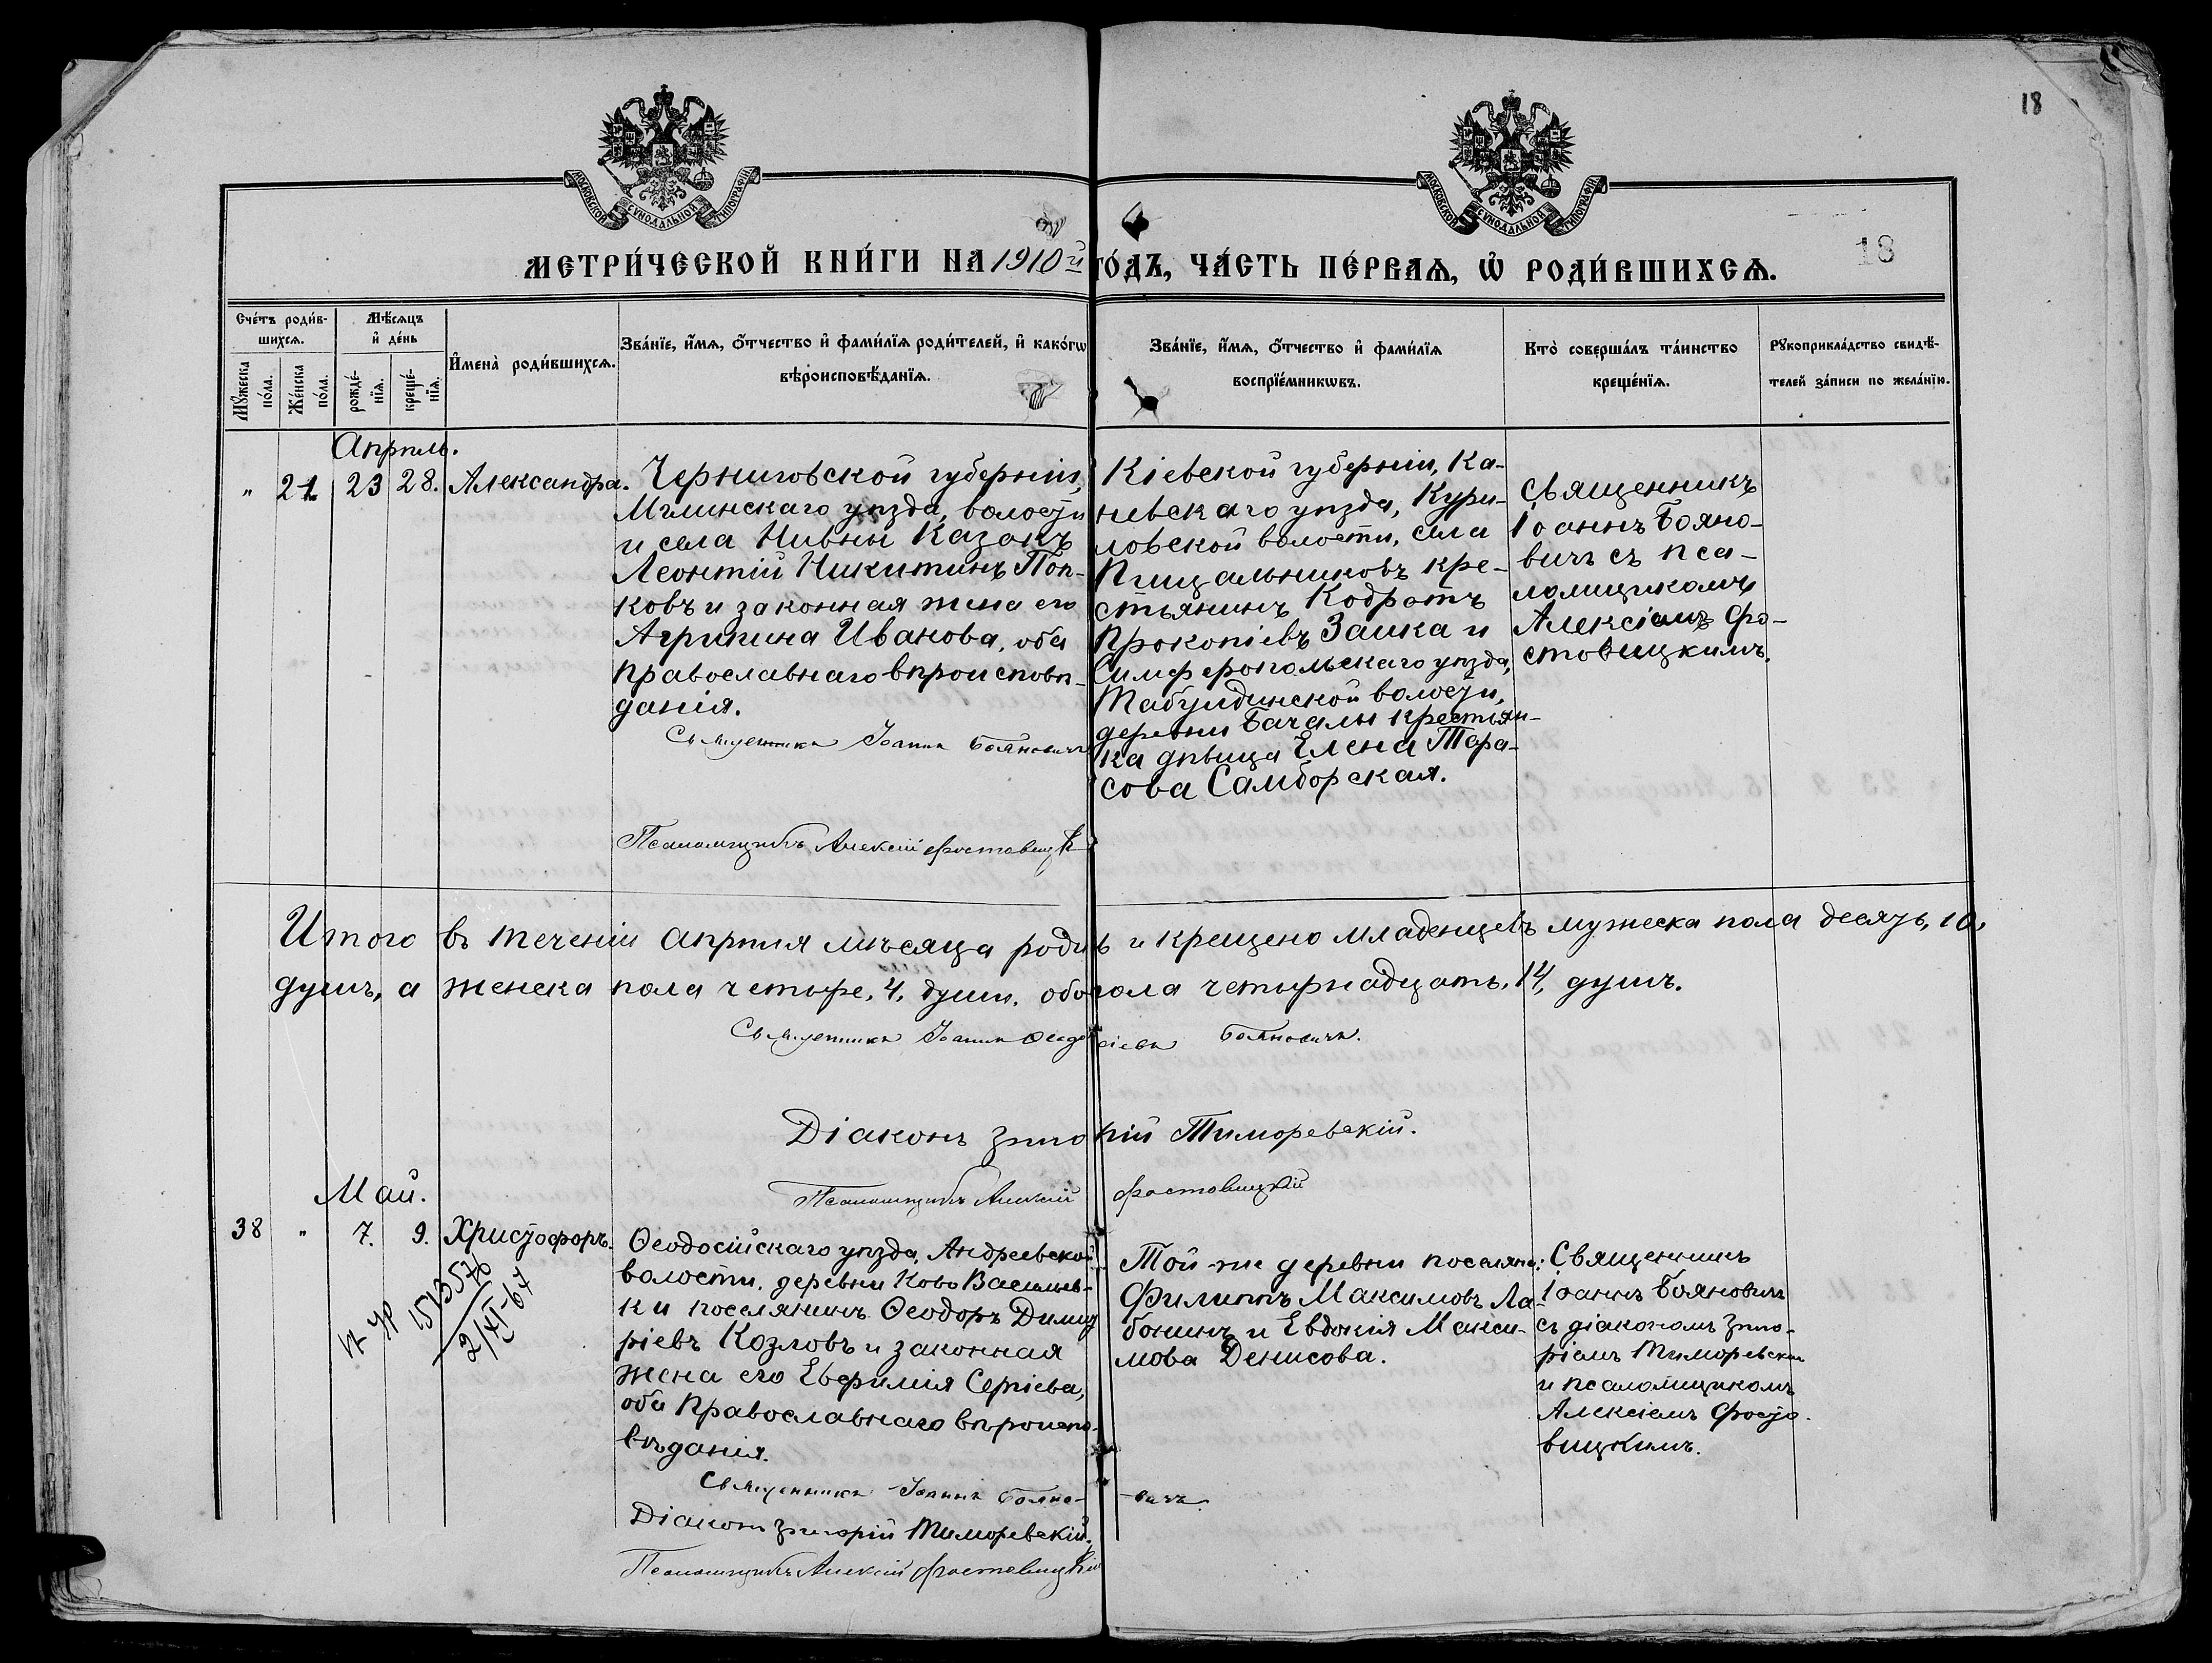 18
МОСКОВСКОЙ СѴНОДАЛЬНОЙ ТИПОГРАФІИ
МОСКОВСКОЙ СѴНОДАЛЬНОЙ ТИПОГРАФІИ
МЕТРИ́ЧЕСКОЙ КНИ́ГИ НА 1910й ГО́ДЪ, ЧА́СТЬ ПЕ́РВАѦ, Ѡ҆ РОДИ́ВШИХСѦ.
18
Сче́тъ роди́в-
шихсѧ.
Мꙋ́жеска
по́ла.
Же́нска
по́ла.
Мѣ́сѧцъ
и҆ де́нь
рожде́-
нїѧ.
креще́-
нїѧ.
И҆мена̀ роди́вшихсѧ.
Зва́нїе, и҆́мѧ, ѻ҆́тчество и҆ фами́лїѧ роди́телей, и҆ како́гѡ
вѣроисповѣ́данїѧ.
Зва́нїе, и҆́мѧ, ѻ҆́тчество и҆ фами́лїѧ
воспрїе́мникѡвъ.
Кто̀ соверша́лъ та́инство
креще́нїѧ.
Рꙋкоприкла́дство свидѣ́-
телей за́писи по жела́нїю.
Апрѣль.
" 21 23 28. Александра.
Черниговской губерніи,
Мглинскаго уѣзда, волости
и села Нивны Казакъ
Леонтій Никитинъ Поп-
ковъ и законная жена его
Агрипина Иванова, оба
православнаго вѣроисповѣ-
данія.
Священникъ Іоаннъ Бояновичъ
Псаломщикъ Алексій Фростовицк
Кіевской губерніи, Ка-
невскаго уѣзда, Кури-
ловской волости, села
Пищальниковъ кре-
стьянинъ Кодратъ
Прокопіевъ Заика и
Симферопольскаго уѣзда,
Табулдинской волости,
деревни Бачалы крестьян-
ка дѣвица Елена Тара-
сова Самборская.
Священникъ
Іоаннъ Бояно-
вичъ съ пса-
ломщикомъ
Алексіемъ Фро-
стовицкимъ.
Итого въ теченіи апрѣля мѣсяца родил и крещено младенцевъ мужеска пола десять, 10,
душъ, а женска пола четыре, 4, души, обо пола четырнадцать, 14, душъ.
Священникъ Іоаннъ Ѳеодосіевъ Бояновичъ.
Діаконъ Григорій Тиморевскій.
Псаломщикъ Алексій Фростовицкій
Май.
38 " 7. 9. Христофоръ.
151357б
2/XI-67
Ѳеодосійскаго уѣзда, Андреевской
волости, деревни Ново Васильев-
ки поселянинъ Ѳеодоръ Димит
ріевъ Козловъ и законная
жена его Евфимія Сергіева,
оба православнаго вѣроиспо-
вѣданія.
Священникъ Іоаннъ Бояно-
-вичъ.
Діаконъ Григорій Тиморевскій.
Псаломщикъ Алексій Фростовицкій
Той-же деревни поселяне:
Филиппъ Максимовъ Ла-
бонинъ и Евдокія Макси-
мова Денисова.
Священникъ
Іоаннъ Бояновичъ
съ діакономъ Григо-
ріемъ Тиморевским
и псаломщикомъ
Алексіемъ Фросто-
вицкимъ.